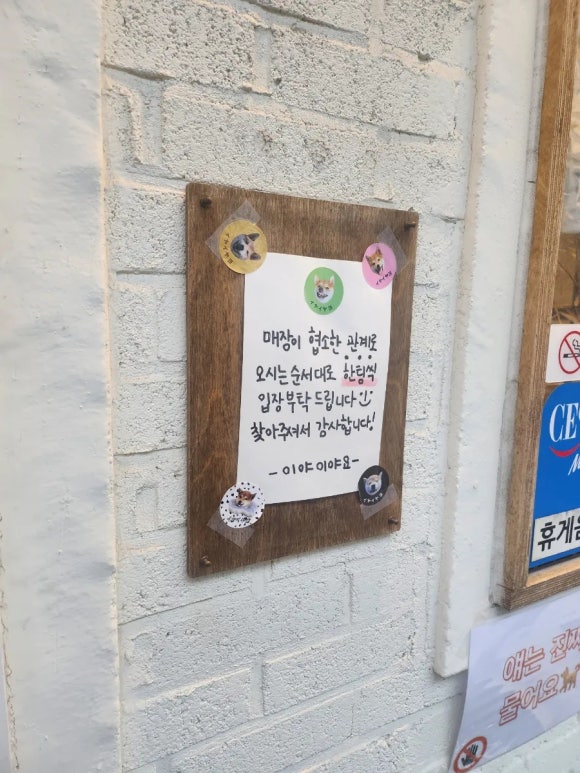 매장이 협소한 관계로
오시는 순서대로 한팀씩
입장부탁 드립니다
찾아주셔서 감사합니다!
- 이야이야요 -
CE
휴게음
얘는 진짜
물어요